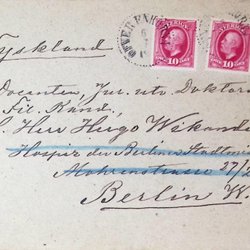 Tyskland
SVERIGE SVERIGE
10 10
Docenten, Jur. utr. Doktorn
Fil. Kand.
Herr Hugo Wikand
Hospiz der Berliner Stadtmis
Mohrenstrasse 27/2
Berlin W.